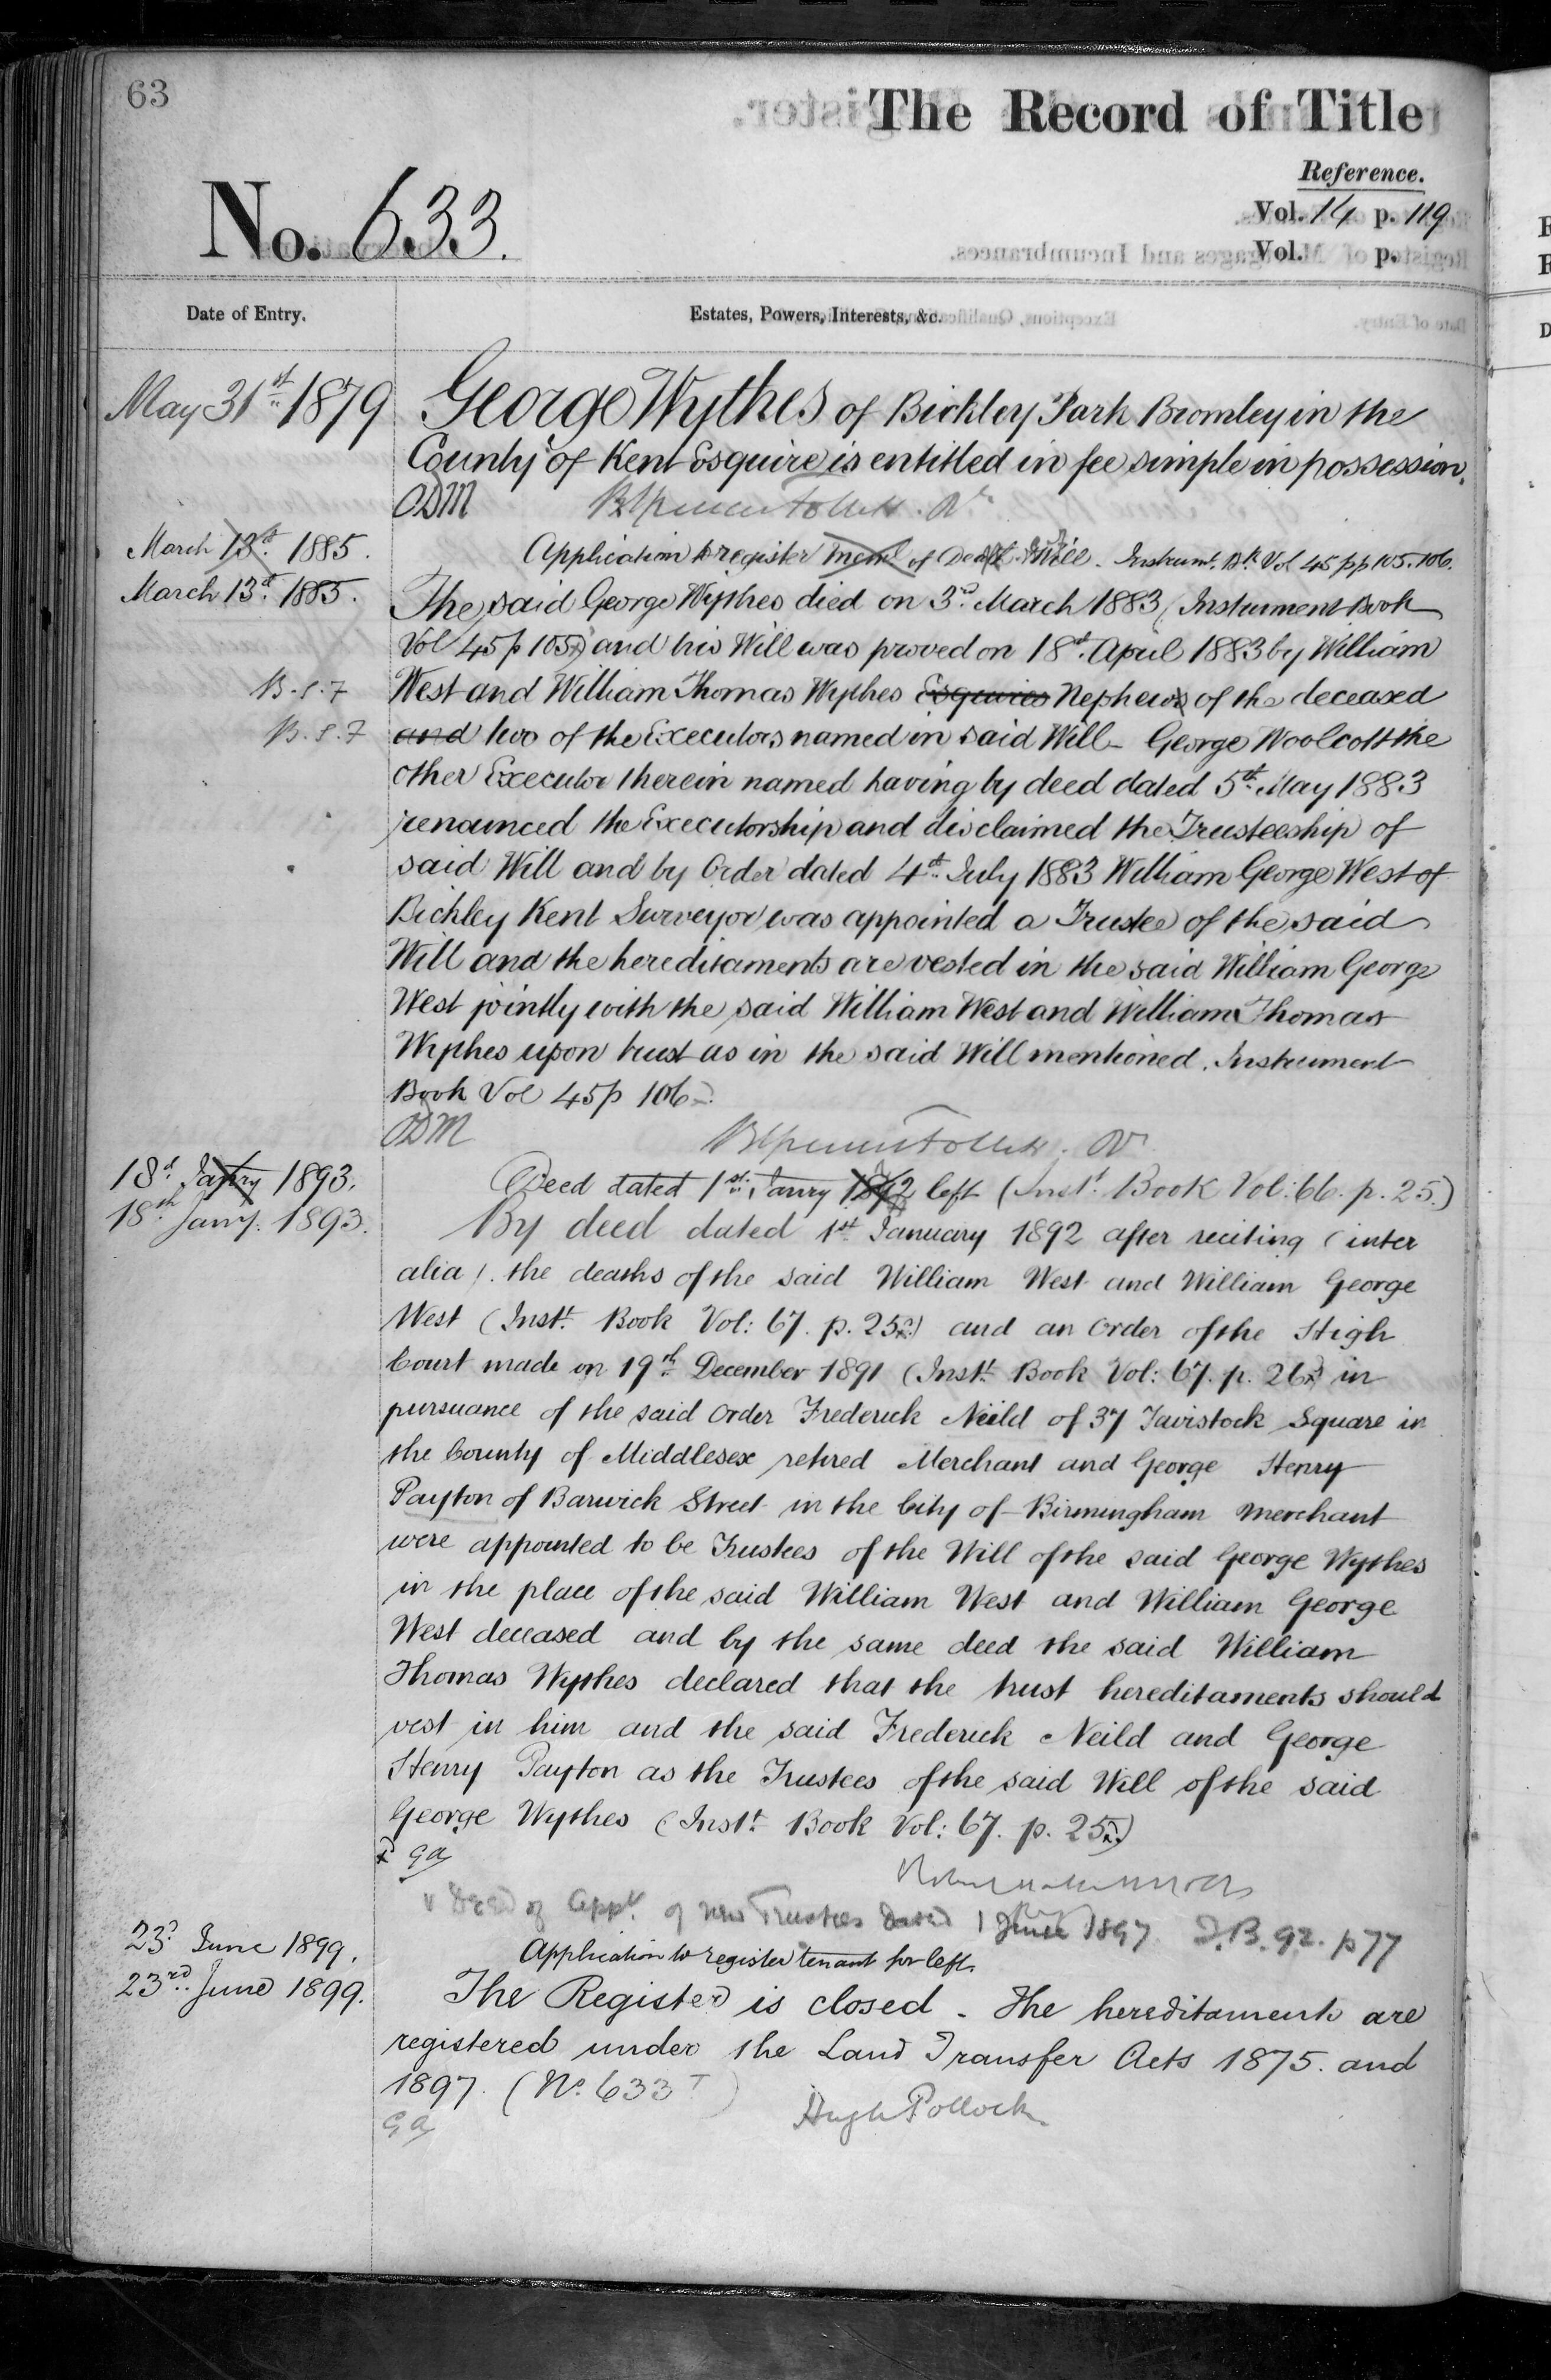 63
The Record of Title
Reference.
No. 633.
Vol. 14 p. 119
Vol. p.
Date of Entry.
Estates, Powers, Interests, &c.
May 31st 1879
George Wythes of Bickley Park Bromley in the
County of Kent Esquire is entitled in fee simple in possession.
ODM
March 13th 1885.
Application to register Meml. of Death & Will. Instrumt. Bk Vol 45 pp 105. 106.
March 13th 1885.
The said George Wythes died on 3rd March 1883 (Instrument Book
Vol 45 p 105) and his Will was proved on 18th April 1883 by William
B.S.7
West and William Thomas Wythes Esquires Nephews of the deceased
B.S.7
and two of the Executors named in said Will - George Woolcott the
other Executor therein named having by deed dated 5th May 1883
renounced the Executorship and disclaimed the Trusteeship of
said Will and by Order dated 4th July 1883 William George West of
Bickley Kent Surveyor was appointed a Trustee of the said
Will and the hereditaments are vested in the said William George
West jointly with the said William West and William Thomas
Wythes upon trust as in the said Will mentioned. Instrument
Book Vol 45 p 106
ODM
18th Janry 1893.
Deed dated 1st Janry 1892 left (Inst. Book Vol: 66. p. 25.)
18th Jany. 1893.
By deed dated 1st January 1892 after reciting (inter
alia). the deaths of the said William West and William George
West (Instt. Book Vol: 67. p. 25) and an Order of the High
Court made on 19th December 1891 (Instt. Book Vol: 67. p. 26) in
pursuance of the said Order Frederick Neild of 37 Tavistock Square in
the County of Middlesex retired Merchant and George Henry
Payton of Barwick Street in the City of Birmingham Merchant
were appointed to be Trustees of the Will of the said George Wythes
in the place of the said William West and William George
West deceased and by the same deed the said William
Thomas Wythes declared that the trust hereditaments should
vest in him and the said Frederick Neild and George
Henry Payton as the Trustees of the said Will of the said
George Wythes (Instt. Book Vol: 67. p. 25)
GA
Deed of Appt. of new Trustees dated 1 June 1897 I.B. 92. p 77
23d June 1899.
Application to register tenant for left.
23rd June 1899.
The Register is closed. The hereditaments are
registered under the Land Transfer Acts 1875. and
1897. (No. 633T)
GA
Hugh Pollock